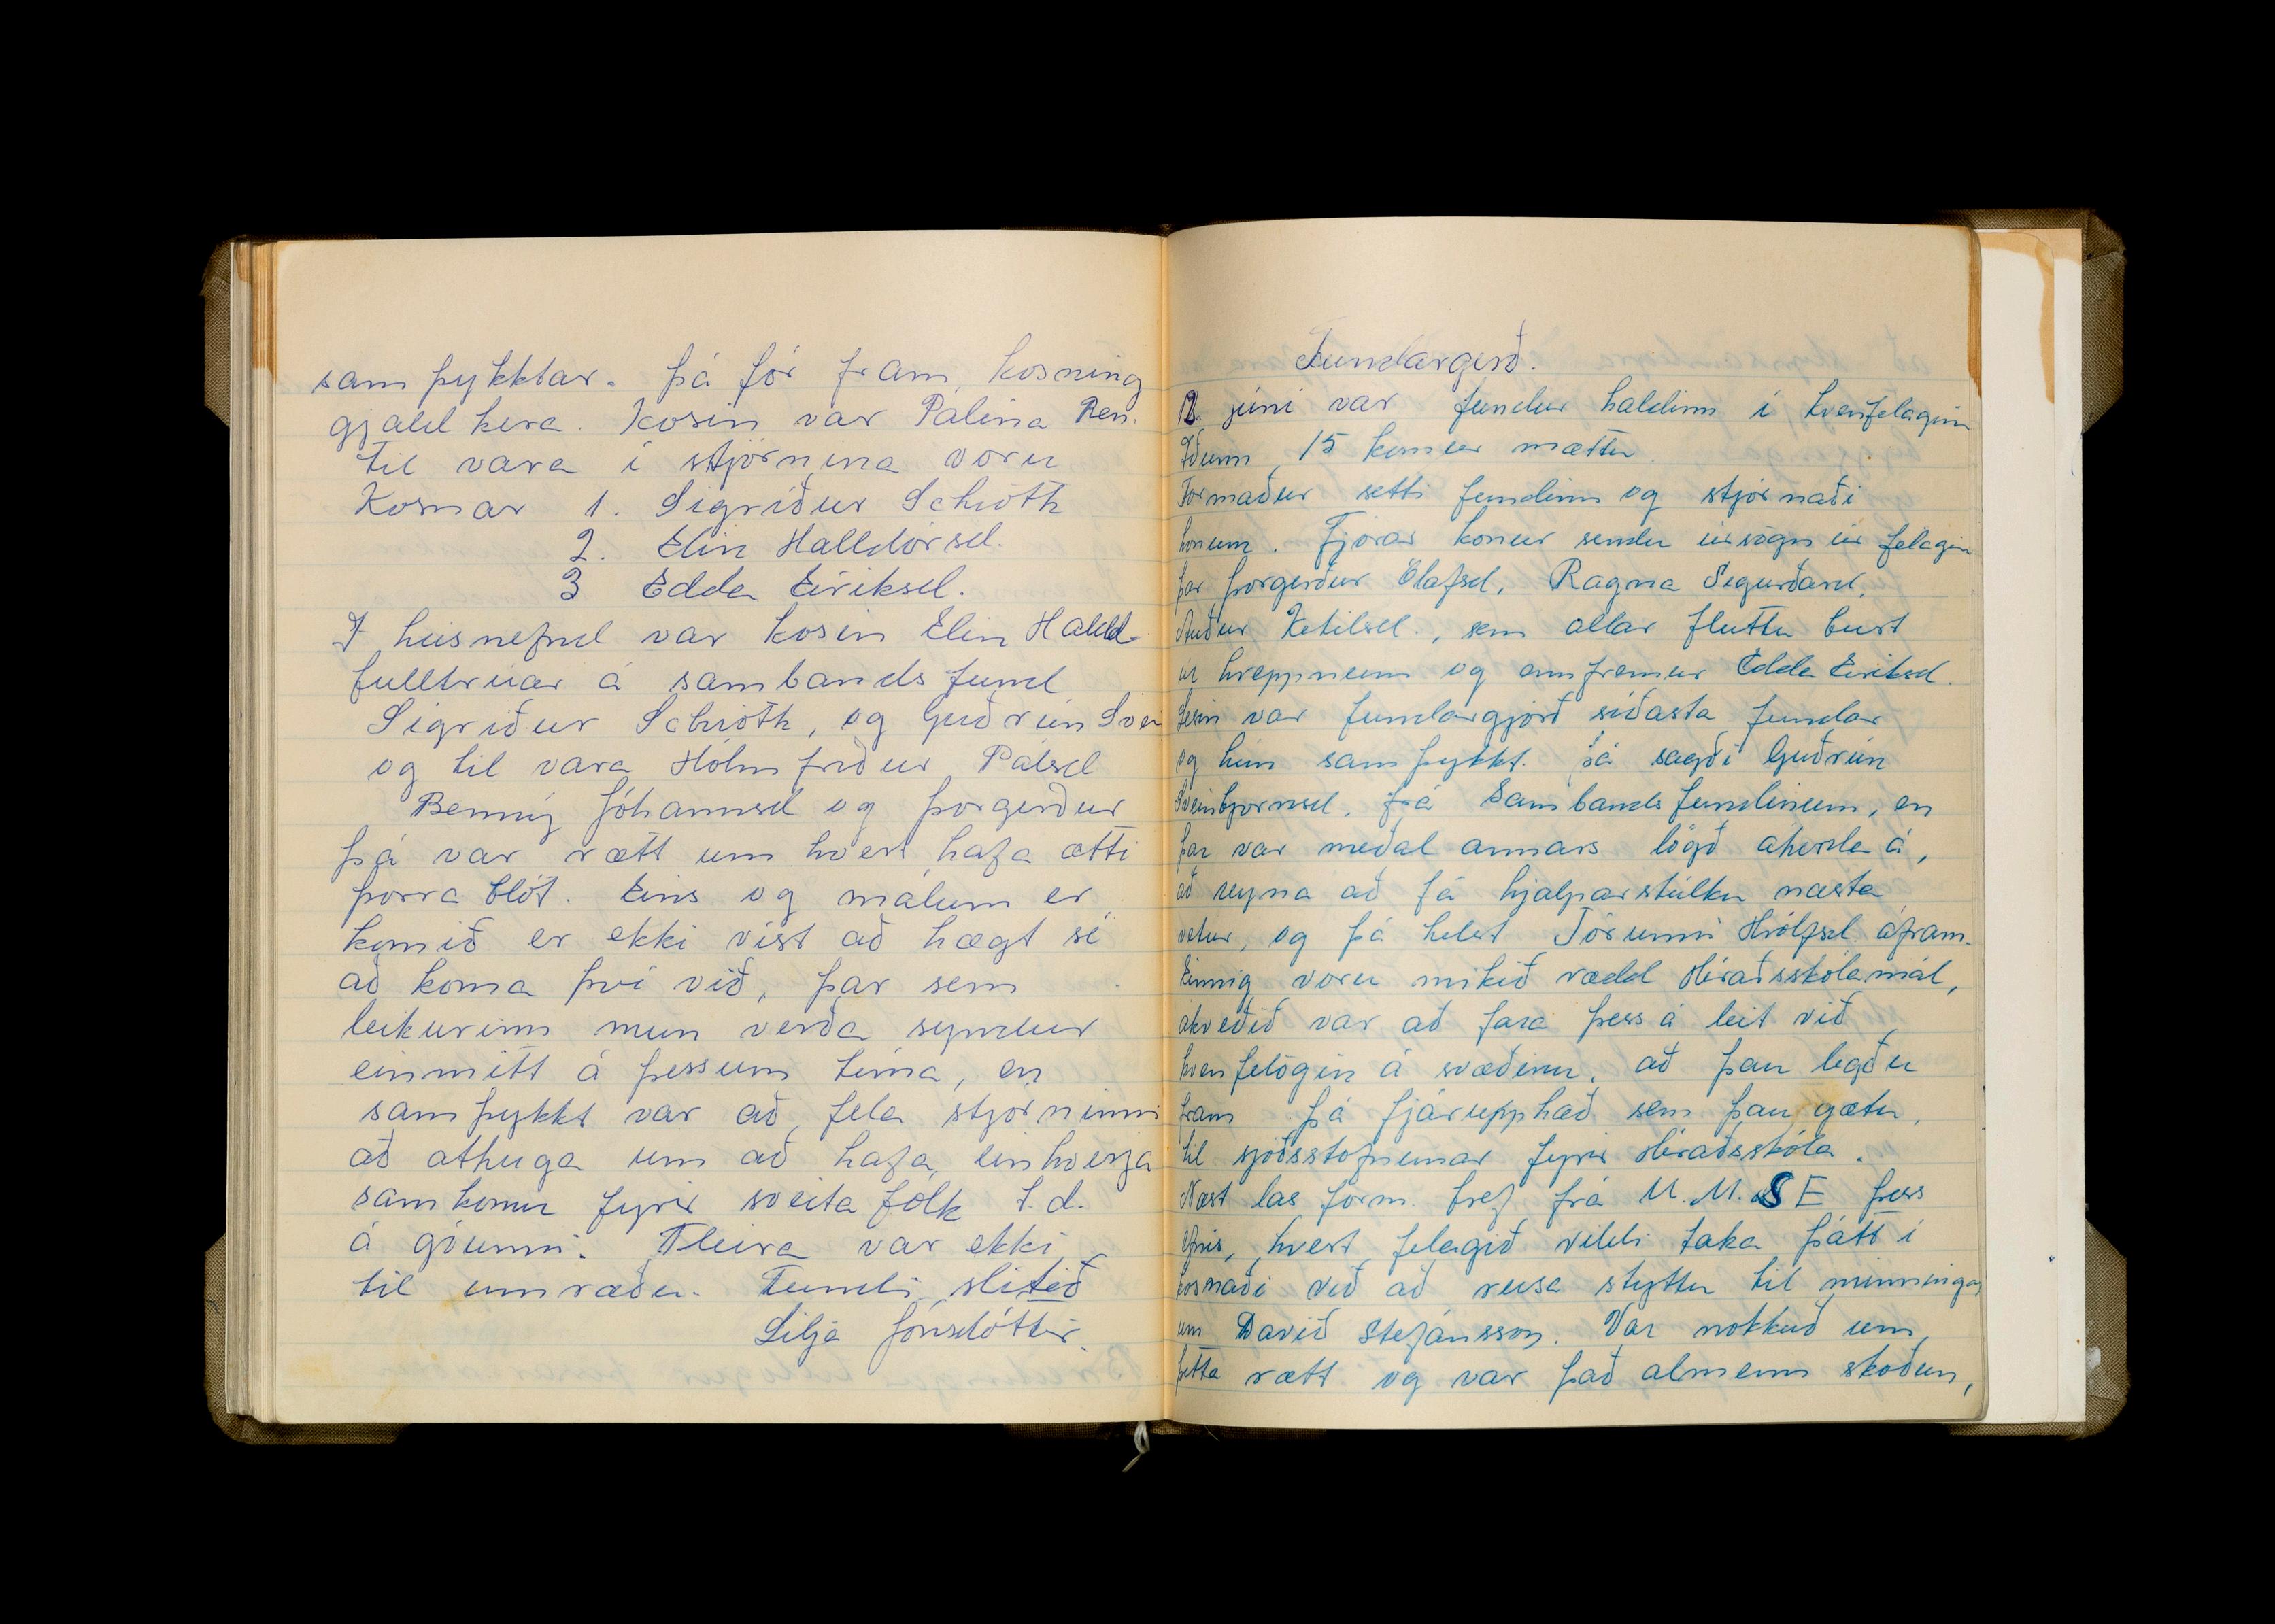 samþykktar. þá fór fram, kosning
gjaldkera. Kosin var Pálína Ben.
til vara í stjórnina voru
Kosnar 1. Sigríður Schiöth
2. Elín Halldórsd.
3 Edda Eiríksd.
I húsnefnd var kosin Elín Halld
fulltrúar á sambandsfund
Sigríður Schiöth, og Guðrún Svei
og til vara Hólmfríður Pálsd
Benný Jóhannsd og þorgerður
þá var rætt um hvert hafa ætti
þorra blót. Eins og málum er
komið er ekki vist að hægt sé
að koma því við, þar sem
leikurinn mun verða syndur
einmitt á þessum tíma, en
samþykkt var að fela stjórninni
að athuga um að hafa, einhverja
samkomu fyrir sveitafólk t.d.
á góunni. Fleira var ekki
til umræðu. Fundi slitið
Lilja Jónsdóttir.
Fundargerð.
12. júní var fundur haldinn í kvenfelaginu
Iðunn, 15 konur mættu.
Formaður setti fundinn og stjórnaði
honum. Fjórar konur sendu úrsögn úr felaginu
þar þorgerður Olafsd, Ragna Sigurðard,
Auður Ketilsd., sem allar fluttu burt
úr hreppnum og ennfremur Edda Eiríksd.
Lesin var fundargjörð síðasta fundar
og hún samþykkt. þá sagði Guðrún
Sveinbjornsd. frá Sambandsfundinum, en
þar var meðal annars lögð aherzla á,
að reyna að fá hjálparstúlku næsta
vetur, og þá helst Jórunni Hrólfsd. áfram.
Einnig voru mikið rædd Héraðsskólamál,
akveðið var að fara þess á leit við
kvenfelögin á svæðinu, að þau legðu
fram þá fjárupphæð sem þau gætu,
til sjóðsstofnunar fyrir Héraðsskóla.
Næst las form. bref frá U.M.SE þess
efnis, hvert felagið vildi taka þátt í
kosnaði við að reisa styttu til minningar
um Davið Stefánsson. Var nokkuð um
þetta rætt og var það almenn skoðun,